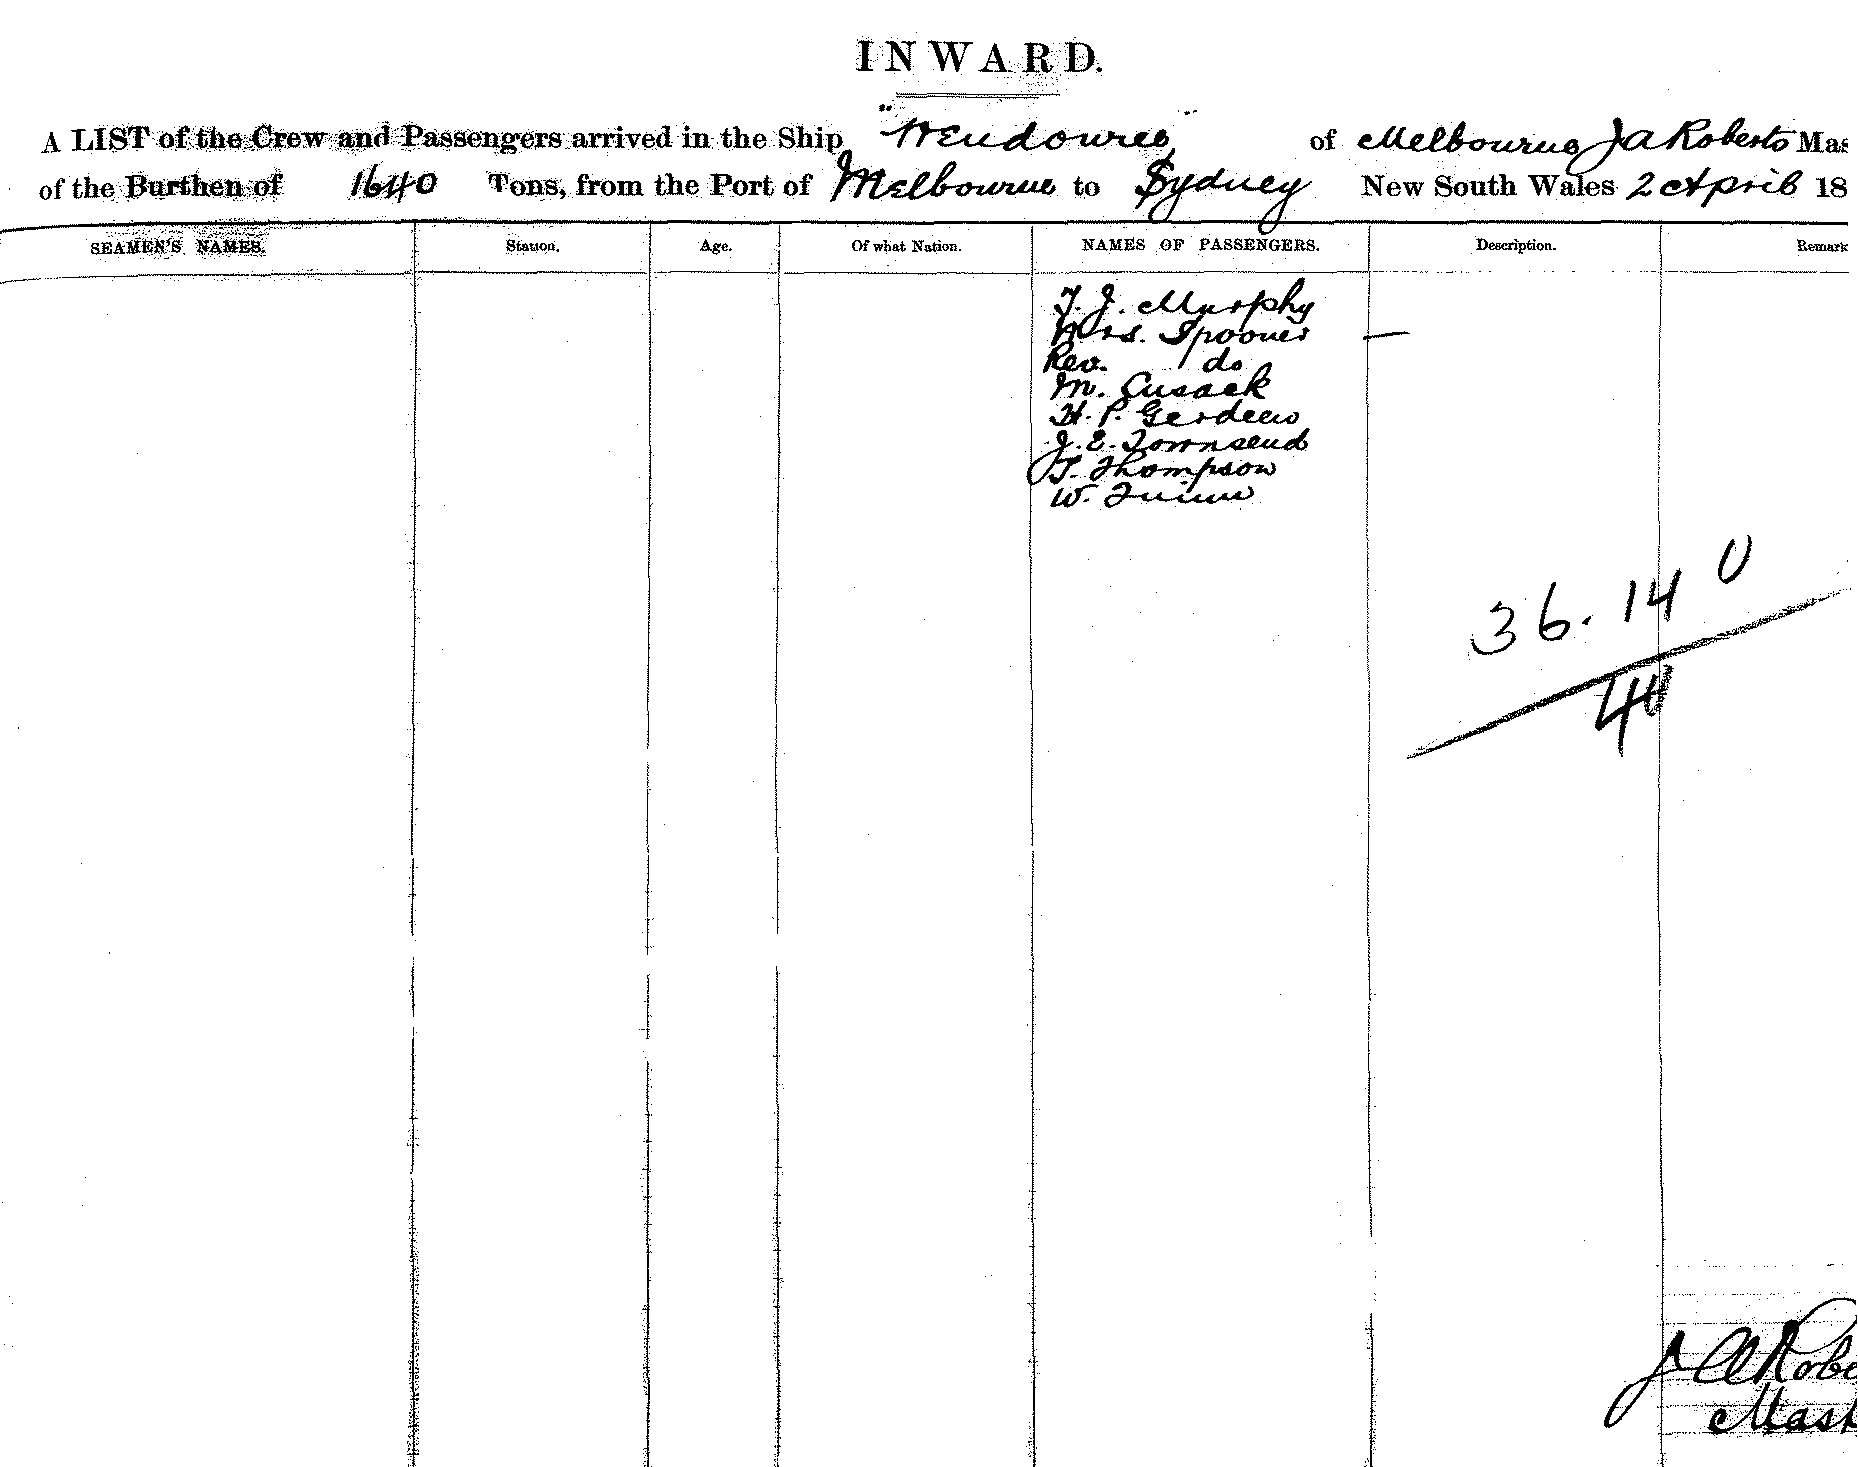 INWARD.
A LIST of the Crew and Passengers arrived in the Ship "Wendouree" of Melbourne J A Roberts Mas
of the Burthen of 1640 Tons, from the Port of Melbourne to Sydney New South Wales 2 April 18
SEAMEN'S NAMES. Station. Age. Of what Nation. NAMES OF PASSENGERS. Description. Remark
T. J. Murphy
Mrs. Spooner —
Rev. do
M. Cusack
H. P.
J. E. Townsend
T. Thompson
W.
36. 14 0
40
J A Robe
Mast